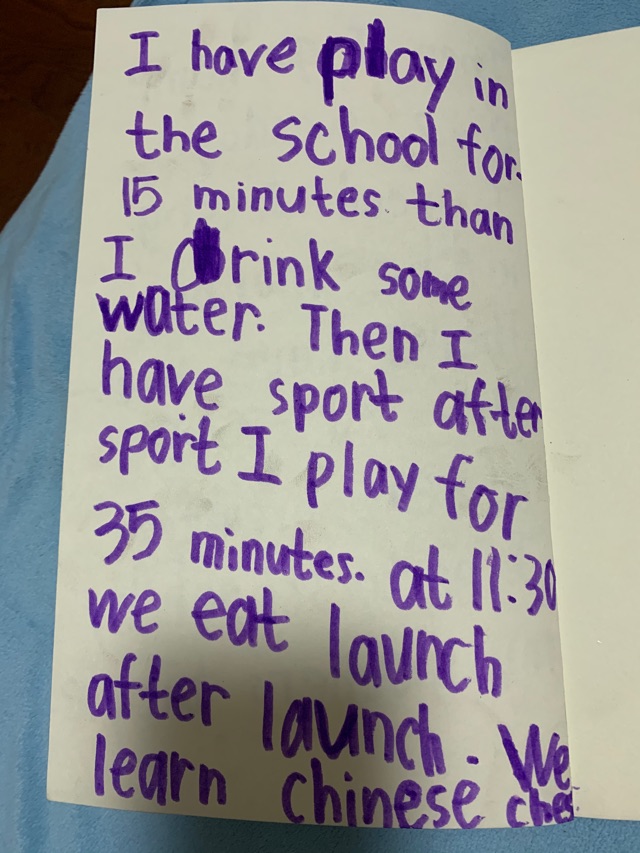 I have play in
the school for
15 minutes. than
I drink some
water. Then I
have sport after
sport I play for
35 minutes. at 11:30
we eat launch
after launch. We
learn chinese ches